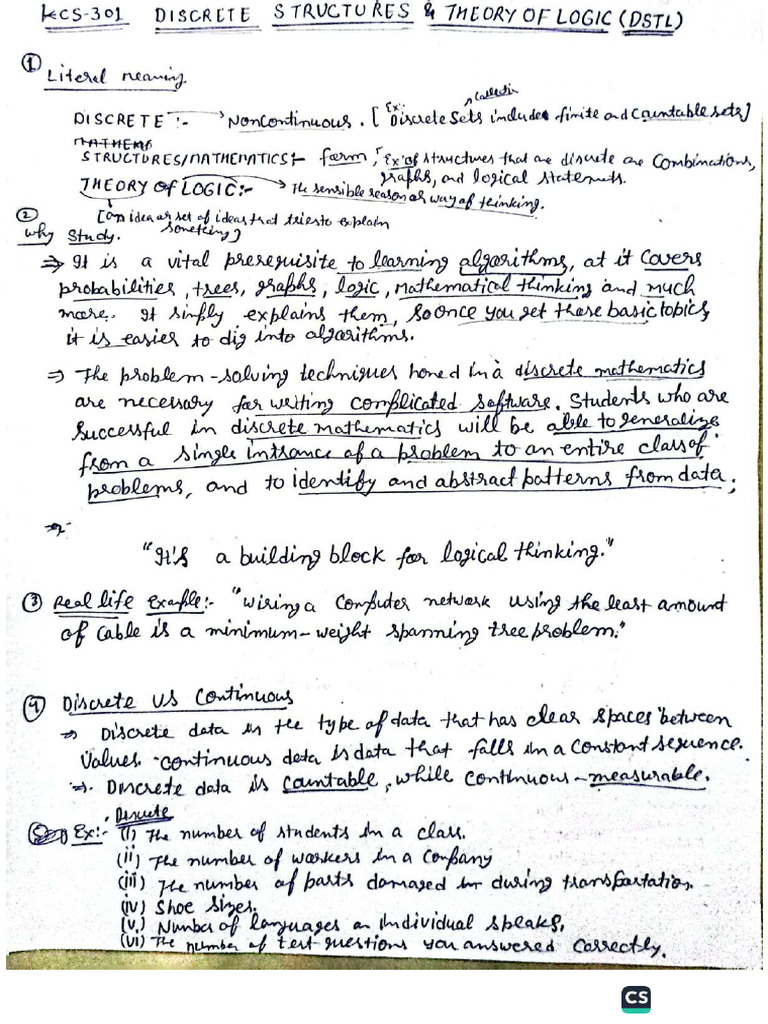 KCS-301 DISCRETE STRUCTURES & THEORY OF LOGIC (DSTL)
① Literal meaning
DISCRETE :- Noncontinuous. [Ex: Discrete Sets include finite and countable sets]
Collection
MATHEMA
STRUCTURES/MATHEMATICS:- form, Ex of structures that are discrete are combinations,
graphs, and logical statements.
THEORY OF LOGIC:- The sensible reason or way of thinking.
[an idea or set of ideas that tries to explain
something]
② Why Study.
⇒ It is a vital prerequisite to learning algorithms, at it covers
probabilities, trees, graphs, logic, mathematical thinking and much
more. It simply explains them, so once you get those basic topics,
it is easier to dig into algorithms.
⇒ The problem-solving techniques honed in a discrete mathematics
are necessary for writing complicated software. Students who are
successful in discrete mathematics will be able to generalize
from a single instance of a problem to an entire class of
problems, and to identify and abstract patterns from data.
"It's a building block for logical thinking."
③ Real life example:- "wiring a computer network using the least amount
of cable is a minimum-weight spanning tree problem."
④ Discrete vs Continuous
⇒ Discrete data is the type of data that has clear spaces between
values. continuous data is data that falls in a constant sequence.
⇒ Discrete data is countable, while continuous - measurable.
Discrete
Ex:- (i) The number of students in a class.
(ii) The number of workers in a company
(iii) The number of parts damaged during transportation.
(iv) Shoe sizes.
(v) Number of languages an individual speaks.
(vi) The number of test questions you answered correctly.
CS